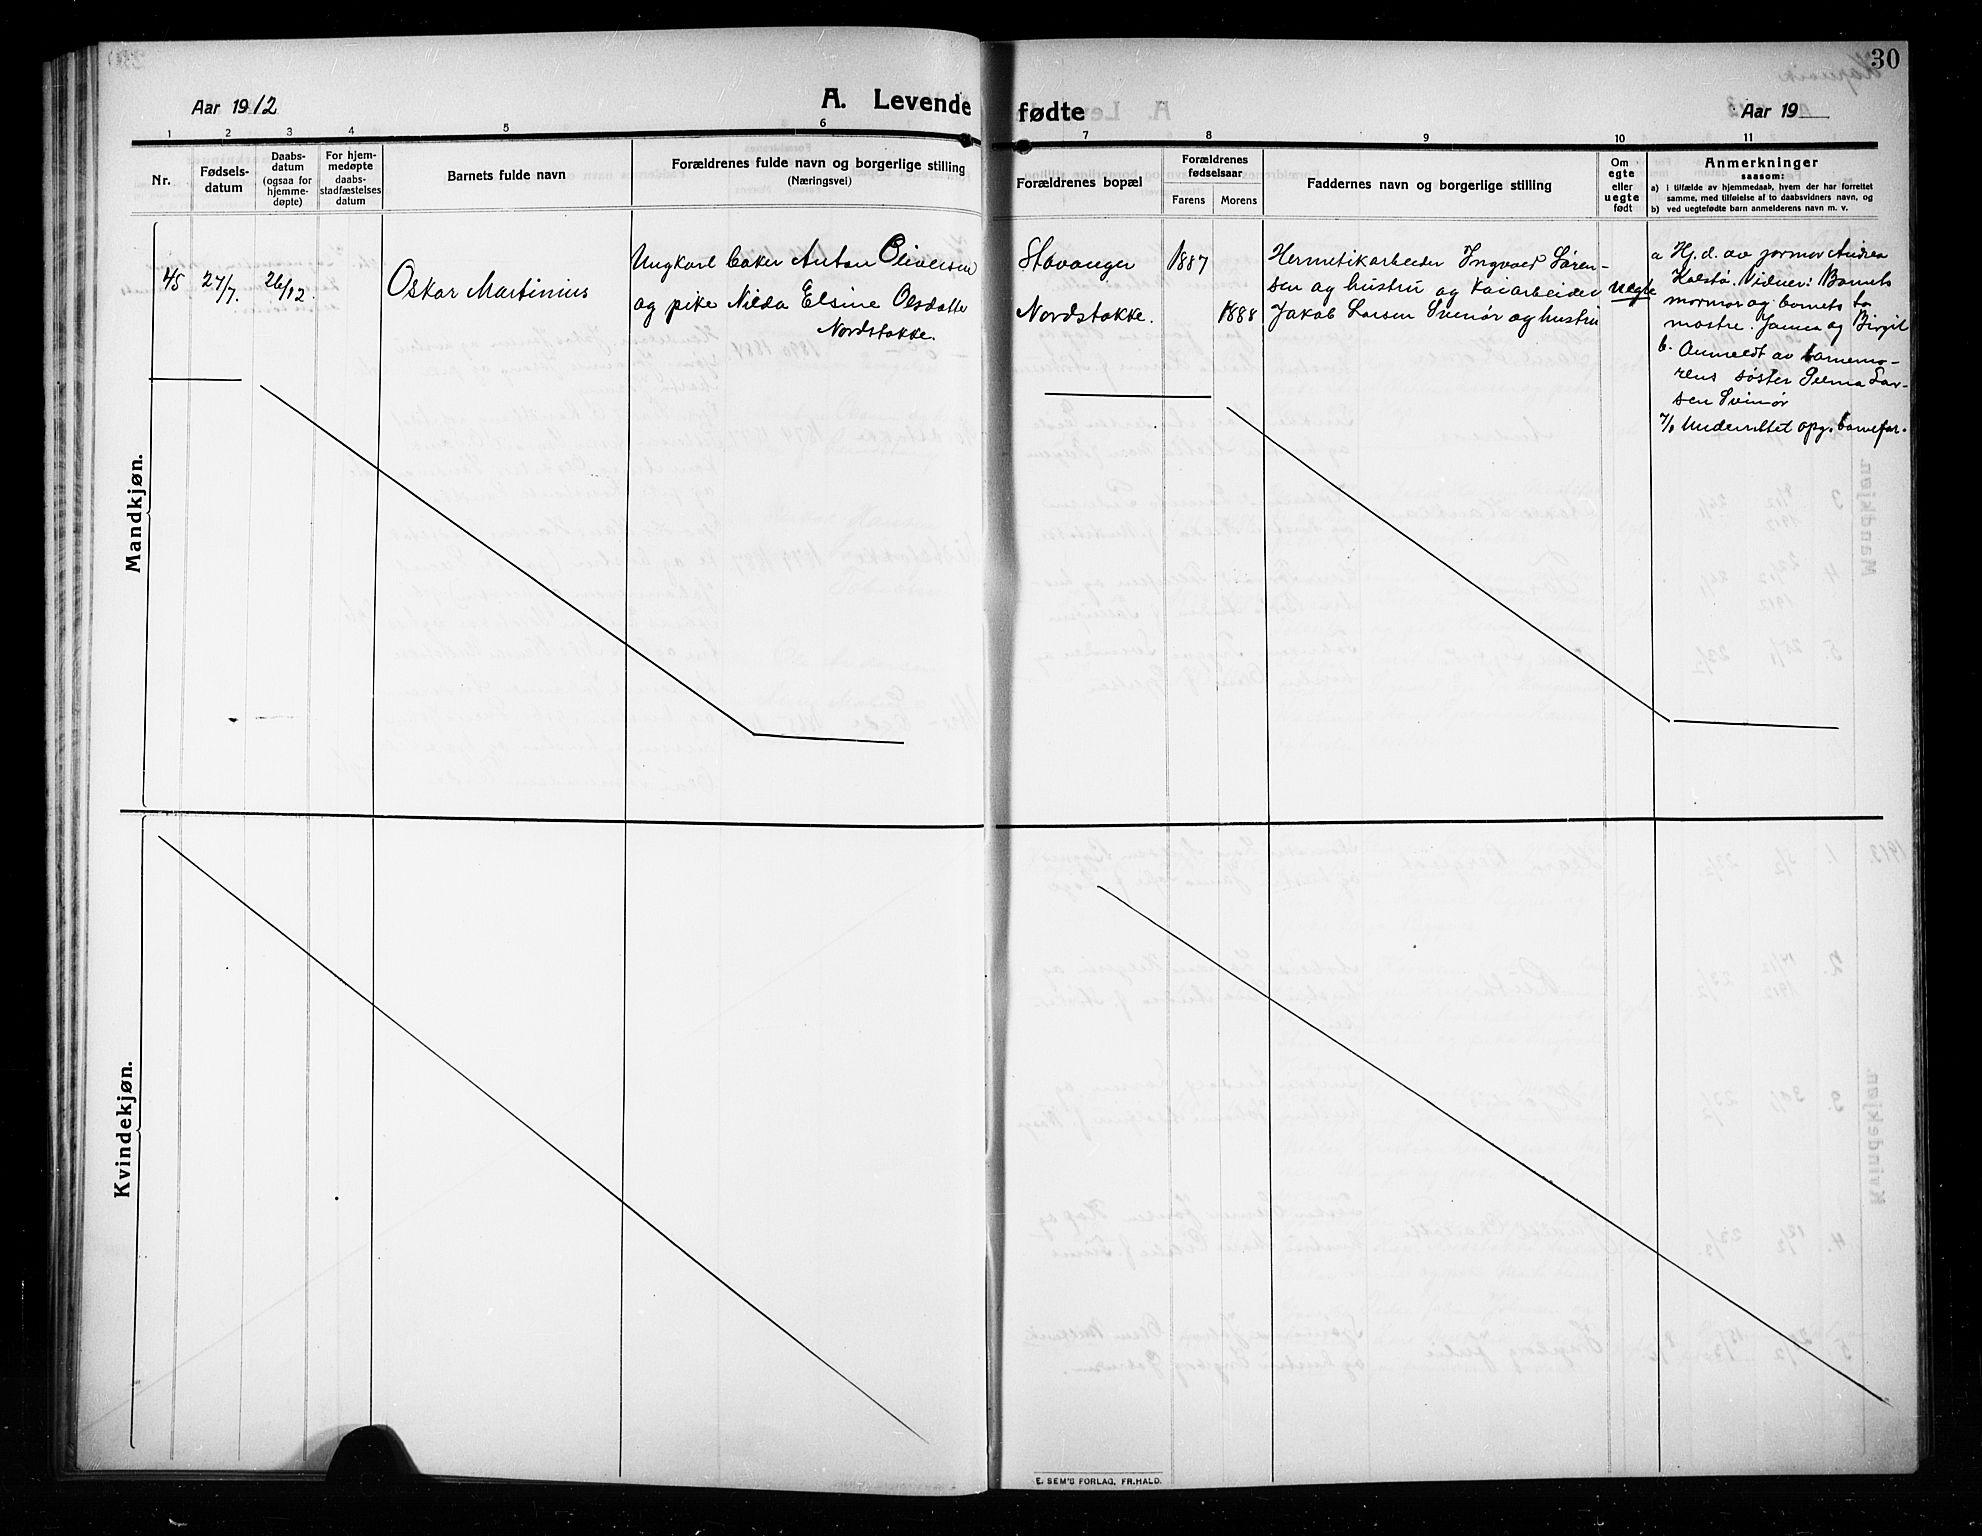 30
Aar 1912
A. Levende fødte
Aar 19
1 2 3 4 5 6 7 8 9 10 11
Nr.
Fødsels-
datum
Daabs-
datum
(ogsaa for
hjemme-
døpte)
For hjem-
medøpte
daabs-
stadfæstelses
datum
Barnets fulde navn
Forældrenes fulde navn og borgerlige stilling
(Næringsvei)
Forældrenes bopæl
Forældrenes
fødselsaar
Farens
Morens
Faddernes navn og borgerlige stilling
Om
egte
eller
uegte
født
Anmerkninger
saasom:
a) i tilfælde av hjemmedaab, hvem der har forrettet
samme, med tilføielse af to daabsvidners navn, og
b) ved uegtefødte barn anmelderens navn m. v.
Mandkjøn.
45
27/7.
26/12.
Oskar Martinius
Ungkarl baker Anton Oliversen
og pike Nilda Elsine Olsdatter
Nordstokke.
Stavanger
Nordstokke.
1887
1888
Hermetikarbeider Ingvald Søren-
sen og hustru og kaiarbeider
Jakob Larsen Svinør og hustru
uegte
a Hj. d. av jormor Andrea
Holstø. Vidner: Barnets
mormor og barnets to
mostre. Janna og Birgit
b. Anmeldt av barnemo-
rens søster Selma Lar-
sen Svinør
Underrettet opg. barnefar.
Kvindekjøn.
E. SEM'S FORLAG, FR.HALD.